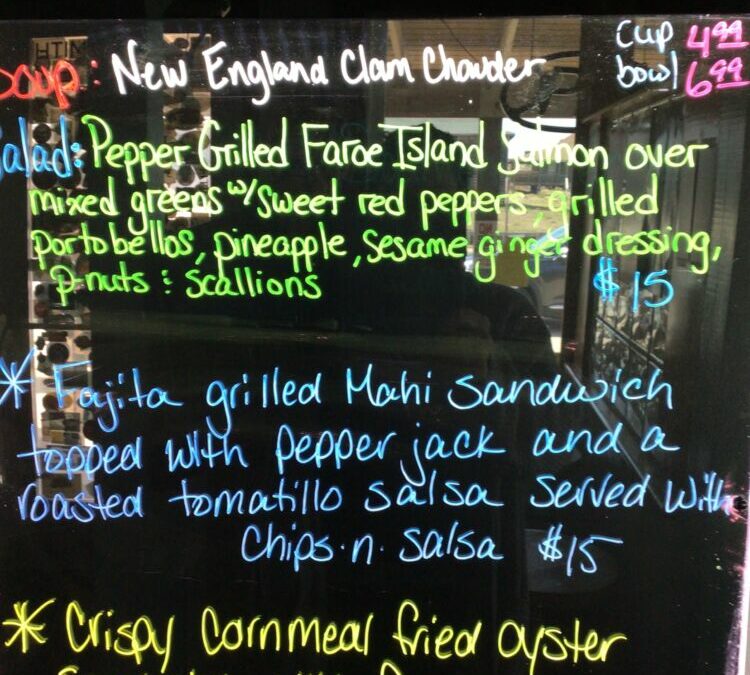 Soup: New England Clam Chowder
cup 4.99
bowl 6.99
Salad: Pepper Grilled Faroe Island Salmon over
mixed greens w/ sweet red peppers, grilled
portobellos, pineapple, sesame ginger dressing,
p-nuts & scallions $15
* Fajita grilled Mahi sandwich
topped with pepper jack and a
roasted tomatillo salsa served with
chips. n. salsa $15
* Crispy Cornmeal fried oyster